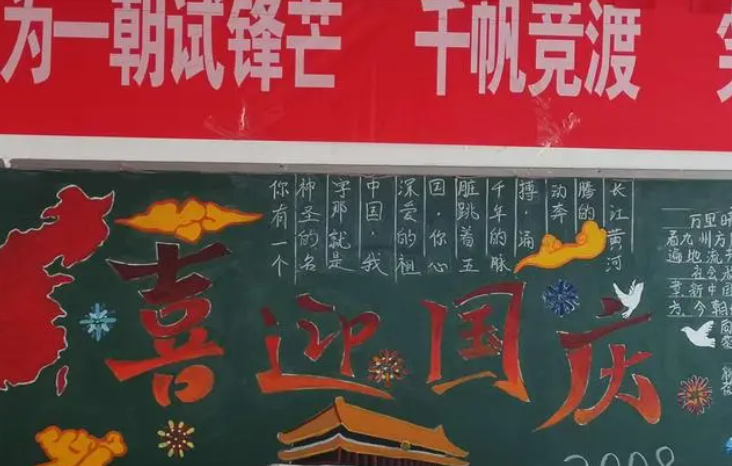 为一朝试锋芒 千帆竞渡
你有一个
神圣的名
字那就是
中国，我
深爱的祖
国，你心
脏跳着五
千年的脉
搏，涌
动奔
腾的
长江黄河
喜迎国庆
万里
看九州方
遍地流
新中国
方，今朝